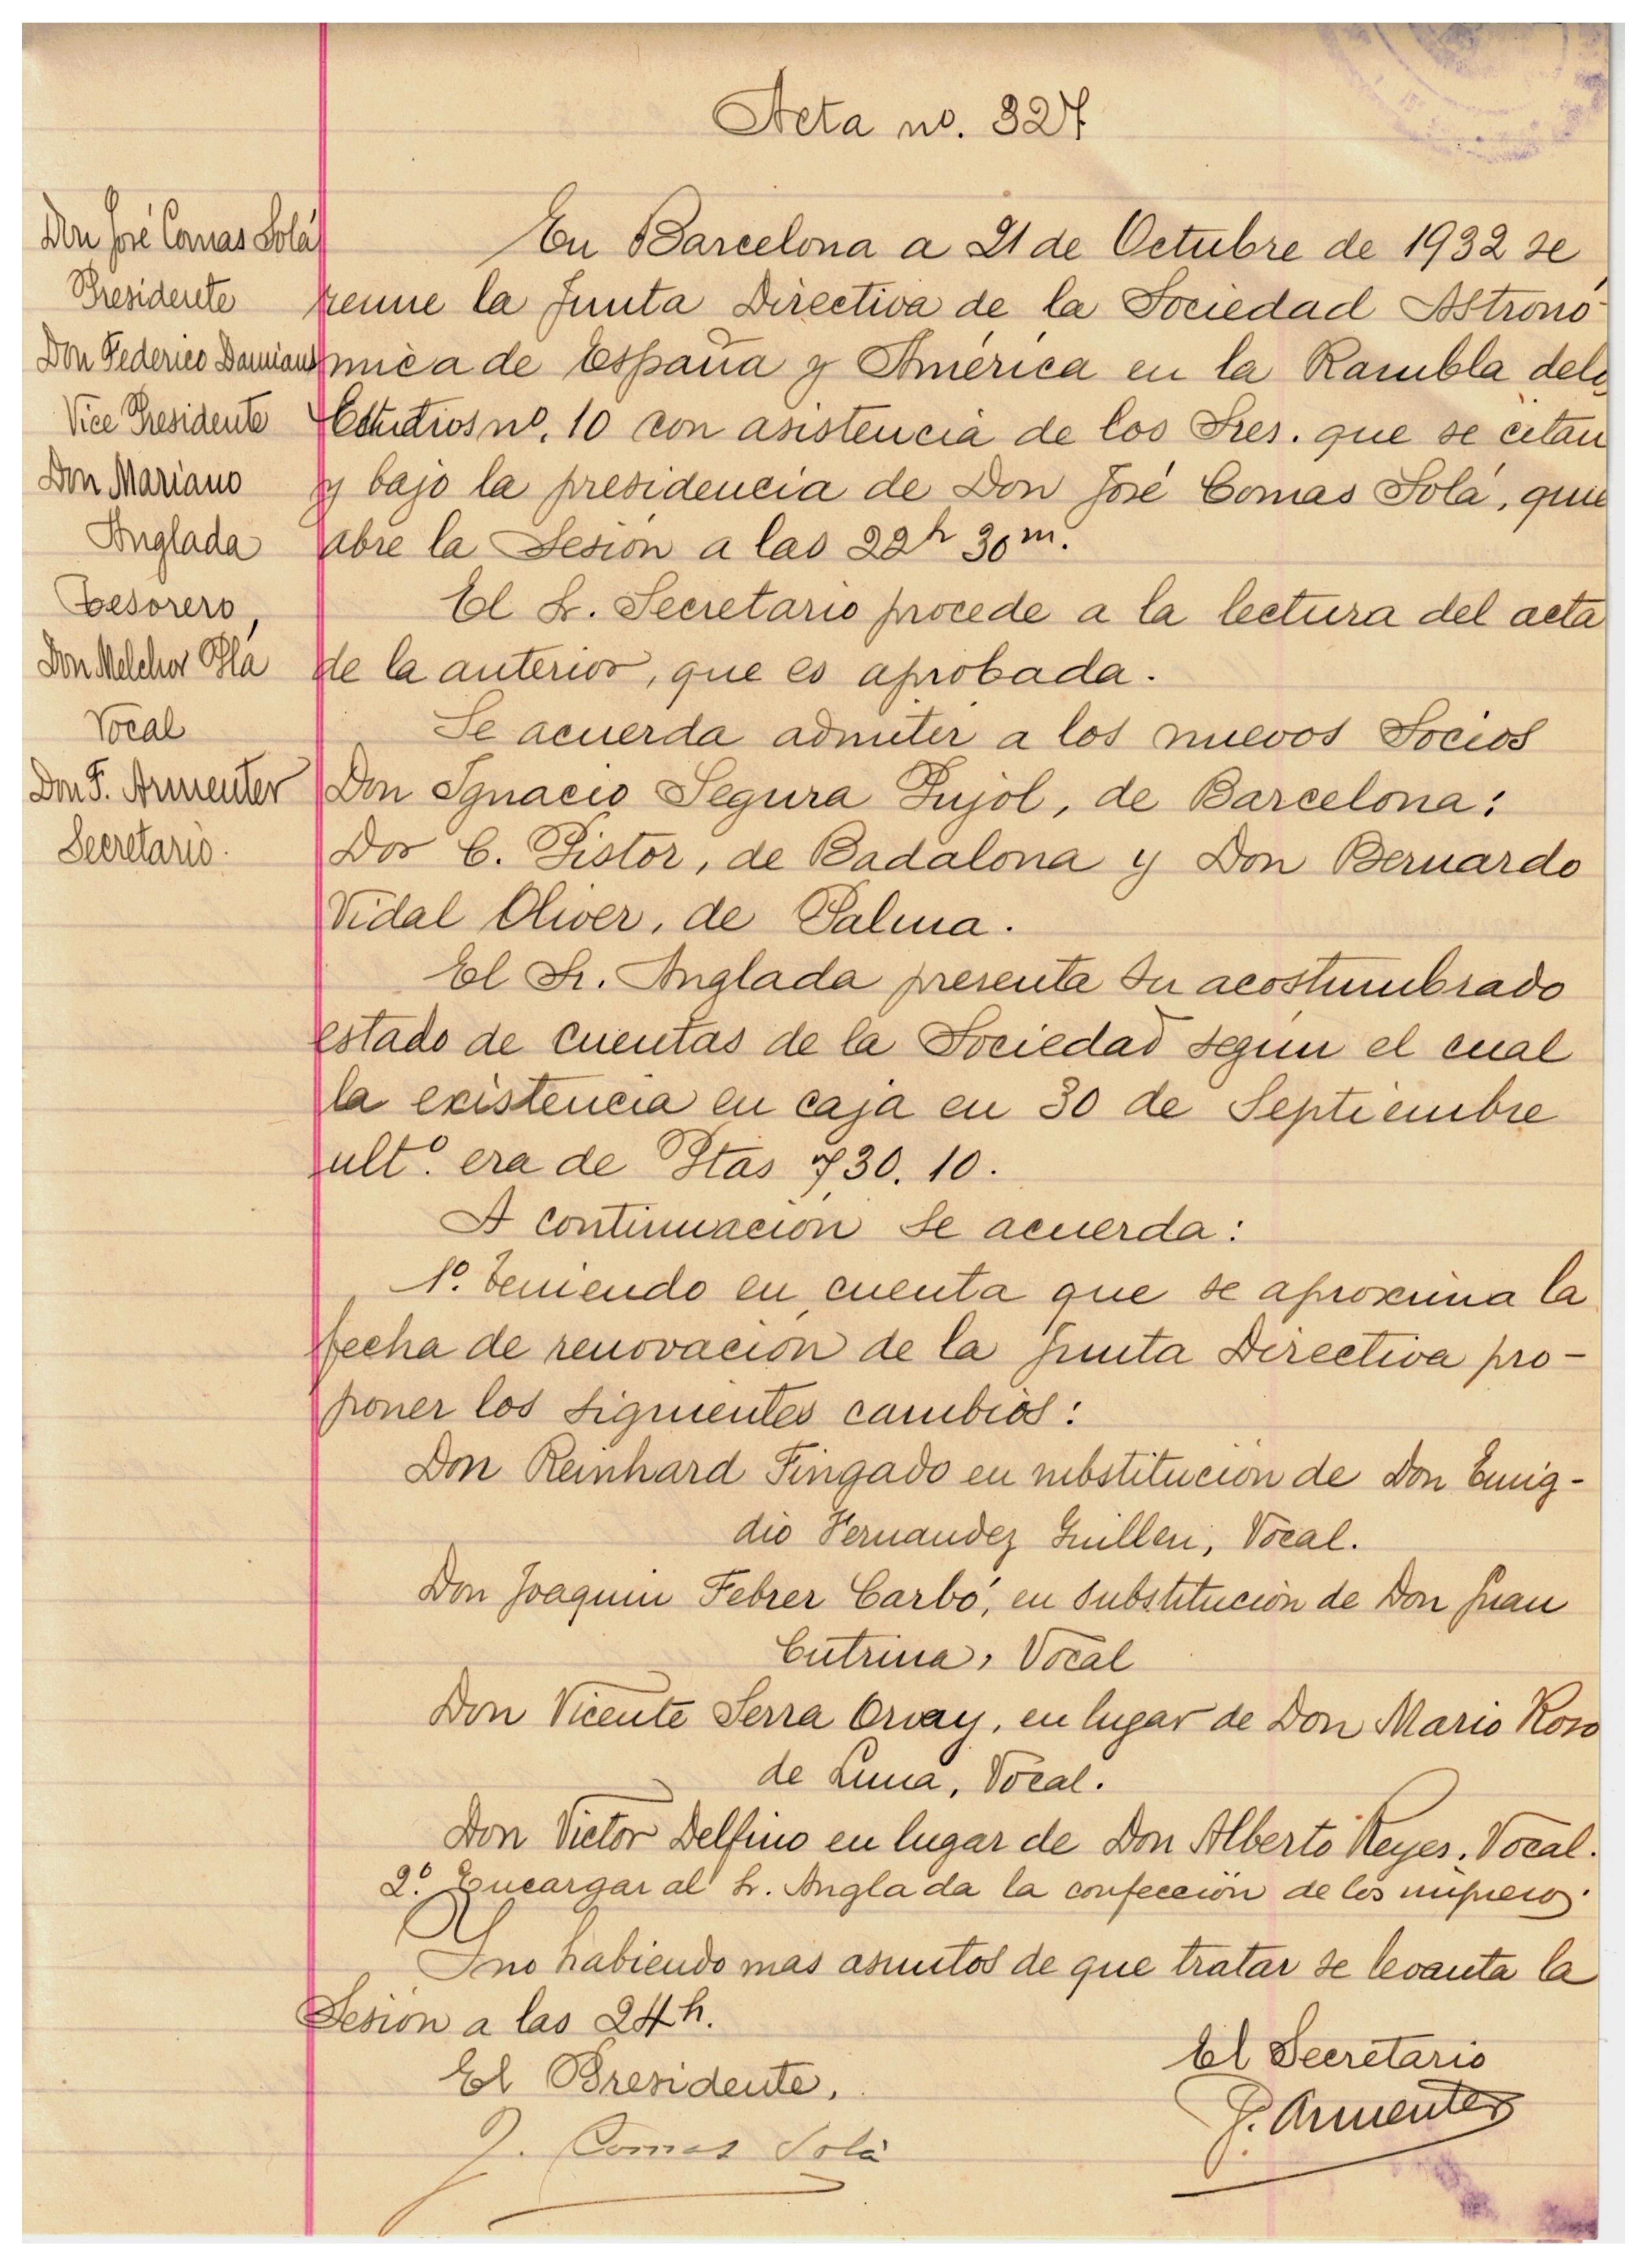 Acta no. 327
Don José Comas Solá
Presidente
Don Federico Damians
Vice Presidente
Don Mariano
Anglada
Tesorero,
Don Melchor Plá
Vocal
Don F. Armenter
Secretario.
En Barcelona a 21 de Octubre de 1932 se
reune la Junta Directiva de la Sociedad Astronó-
mica de España y América en la Rambla delos
Estudios no. 10 con asistencia de los Sres. que se citan
y bajo la presidencia de Don José Comas Solá, quie
abre la Sesión a las 22h 30m.
El Sr. Secretario procede a la lectura del acta
de la anterior, que es aprobada.
Se acuerda admitir a los nuevos Socios
Don Ignacio Segura Pujol, de Barcelona:
Don C. Pistor, de Badalona y Don Bernardo
Vidal Oliver, de Palma.
El Sr. Anglada presenta su acostumbrado
estado de cuentas de la Sociedad según el cual
la existencia en caja en 30 de Septiembre
ultº. era de Ptas 730.10.
A continuación se acuerda:
1º. Teniendo en cuenta que se aproxima la
fecha de renovación de la Junta Directiva pro-
poner los siguientes cambios:
Don Reinhard Fingado en substitución de Don Emig-
dio Fernandez Guillen, Vocal.
Don Joaquin Febrer Carbó, en substitución de Don Juan
Cutrina, Vocal
Don Vicente Serra Orvay, en lugar de Don Mario Roso
de Luna, Vocal.
Don Victor Delfino en lugar de Don Alberto Reyes, Vocal.
2º. Encargar al Sr. Anglada la confección de los impresos.
Y no habiendo mas asuntos de que tratar se levanta la
Sesión a las 24h.
El Presidente,
J. Comas Solá
El Secretario
F. Armenter